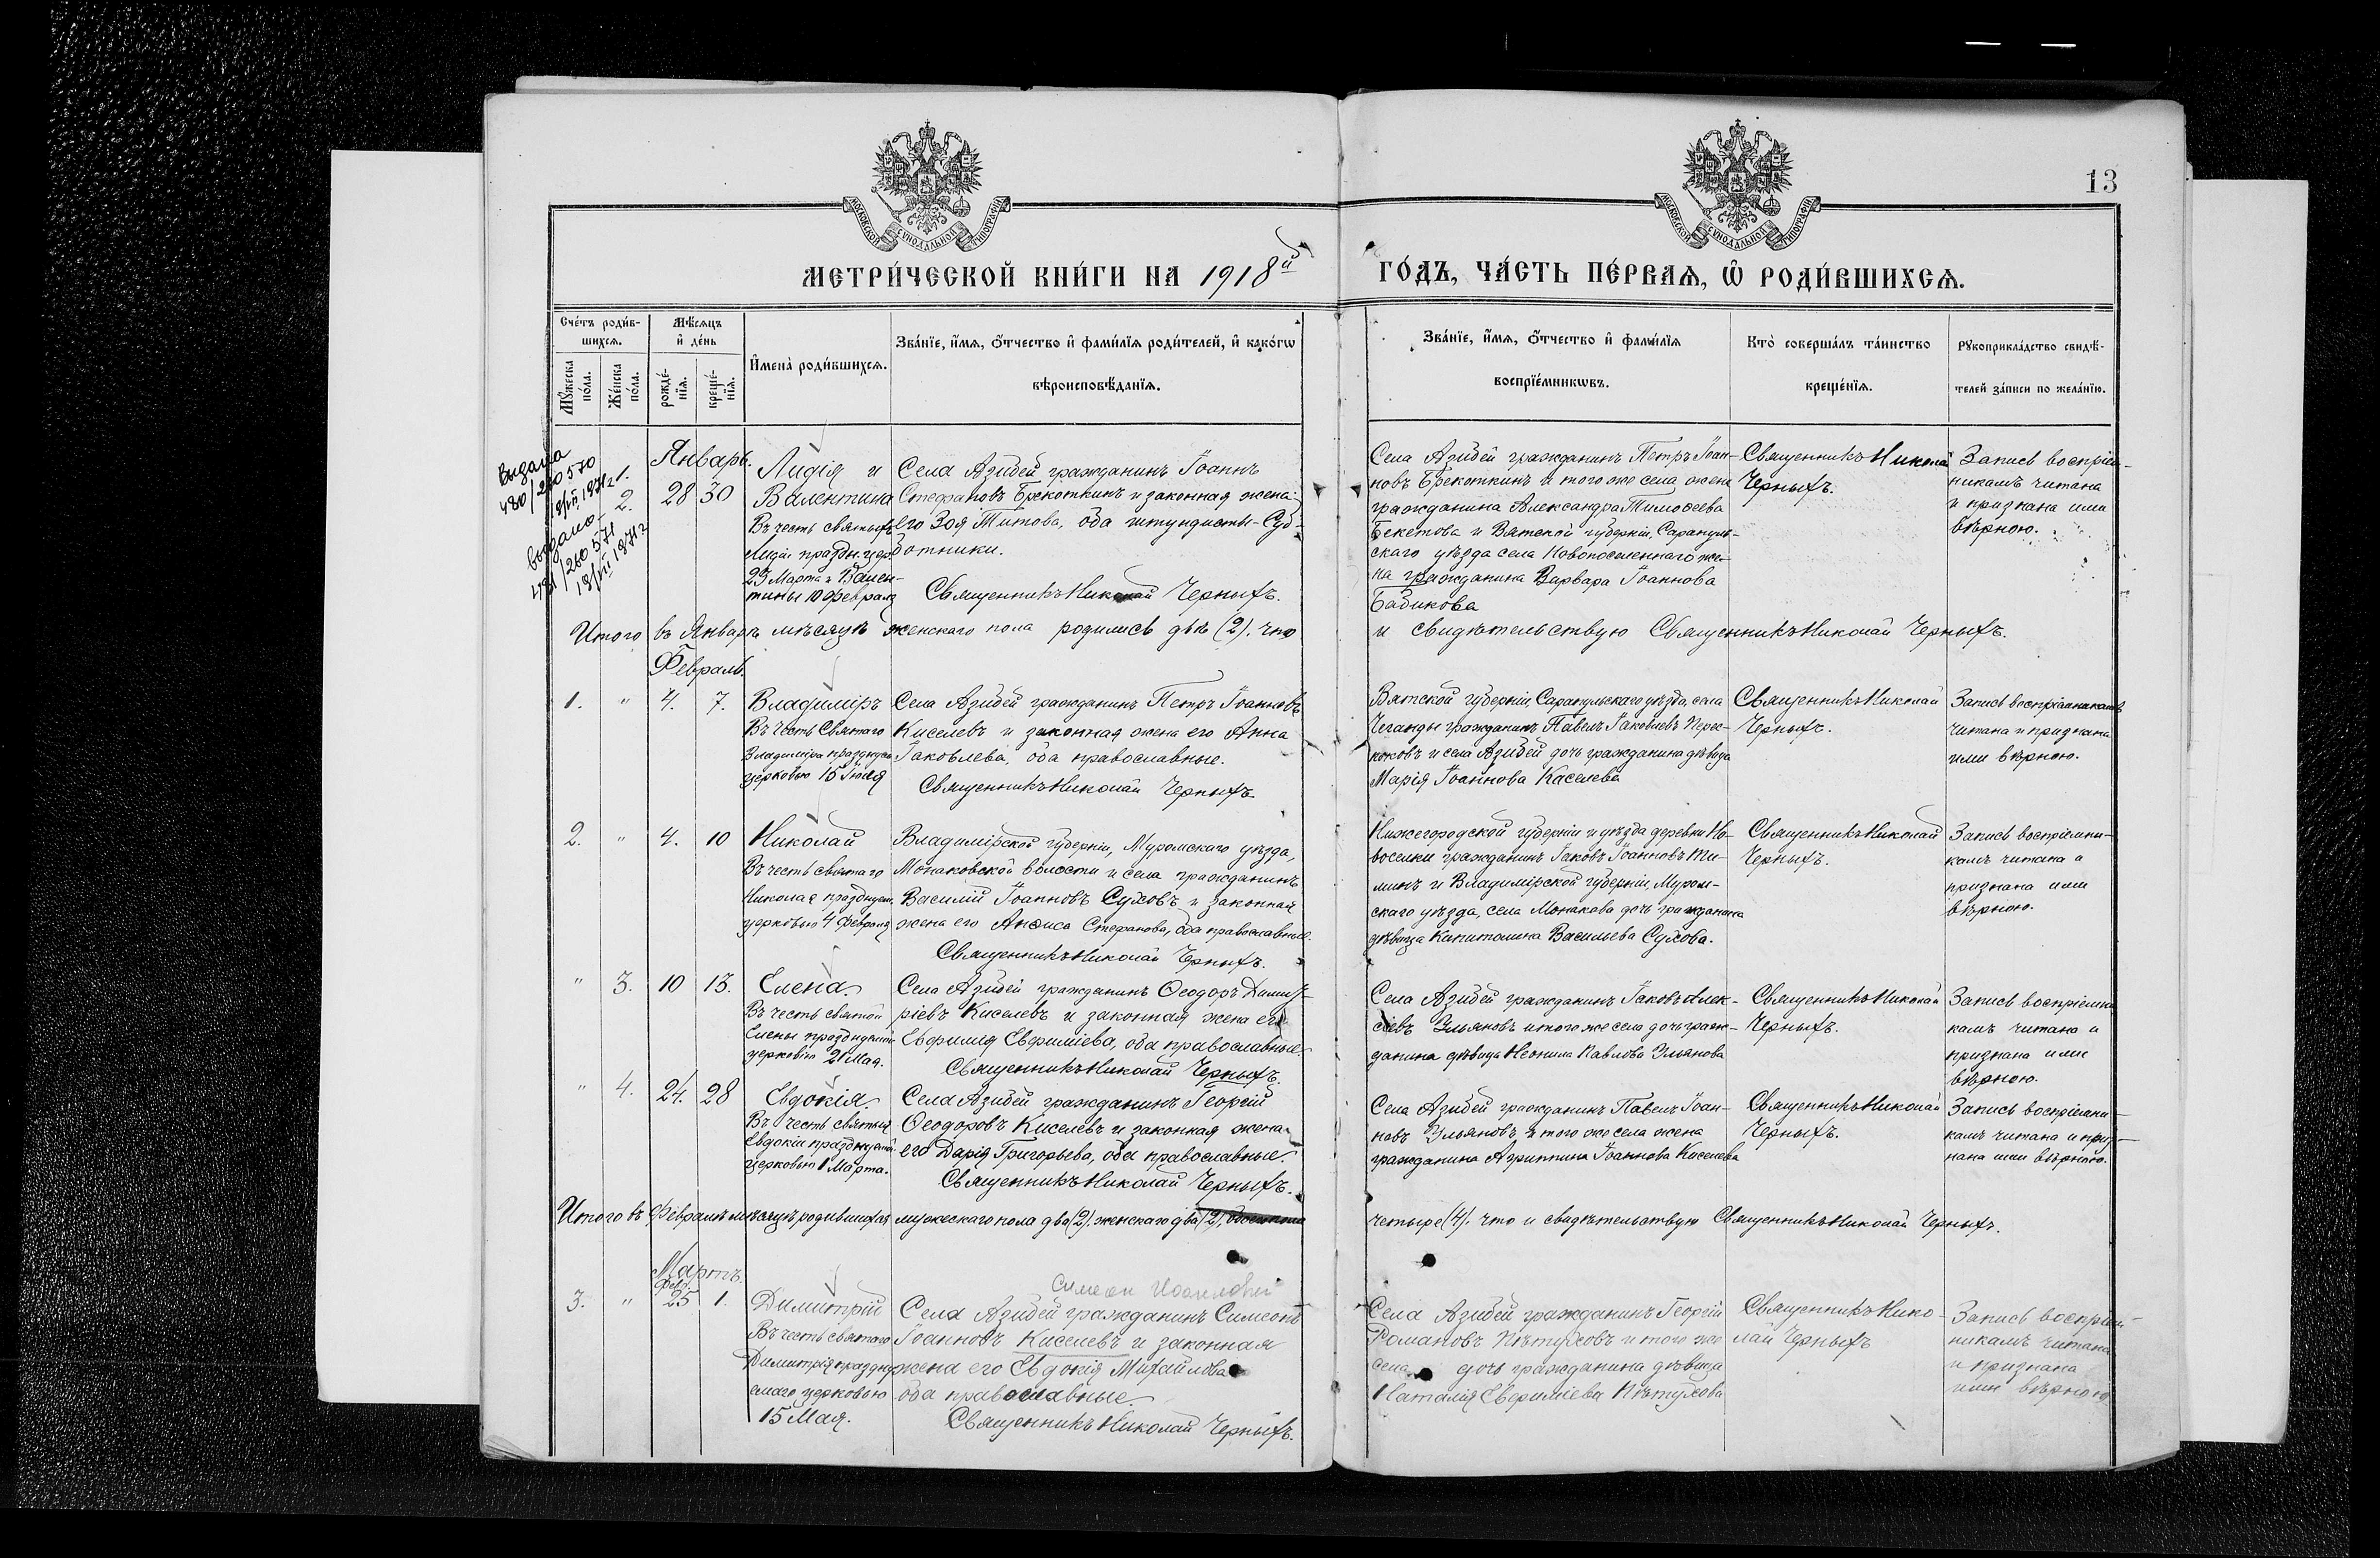 13
МЕТРИ́ЧЕСКОЙ КНИ́ГИ НА 1918й ГО́ДЪ, ЧА́СТЬ ПЕ́РВАЯ, Ѿ РОДИ́ВШИХСЯ.
Сче́тъ роди́в-
шихся.
Мѣ́сяцъ
и҆ де́нь
Му́жеска
по́ла.
Же́нска
по́ла.
рожде́-
нїя.
креще́-
нїя.
И҆мена̀ роди́вшихся.
Зва́нїе, и҆́мя, о҆́тчество и҆ фами́лїя роди́телей, и҆ како́гѡ
вѣроисповѣ́данїя.
Зва́нїе, и҆́мя, о҆́тчество и҆ фами́лїя
воспрїе́мникѡвъ.
Кто̀ соверша́лъ та́инство
креще́нїя.
Рукоприкла́дство свидѣ́-
телей за́писи по жела́нїю.
480/260570
481/260571
Январь.
1.
2.
28
30
Лидія и
Валентина
Въ честь святыхъ
Лидіи праздн. церк
23 Марта и Вален-
тины 10 Февраля
Села Азибей гражданинъ Іоаннъ
Стефановъ Брекоткинъ и законная жена
его Зоя Титова, оба штундисты-Суб-
ботники.
Священникъ Николай Черныхъ.
Села Азибей гражданинъ Петръ Іоан-
новъ Брекоткинъ и того же села жена
гражданина Александра Тимоѳеева
Бекетова и Вятской губерніи, Сарапуль-
скаго уѣзда села Новопоселеннаго же-
на гражданина Варвара Іоаннова
Бабикова
Священникъ Николай
Черныхъ.
Запись воспріем-
никамъ читана
и признана ими
вѣрною.
Итого въ Январѣ мѣсяцѣ женскаго пола родились двѣ (2). что и свидѣтельствую Священникъ Николай Черныхъ.
Февраль.
1.
"
4.
7.
Владиміръ
Въ честь Святаго
Владиміра празднуем
церковью 15 Іюля
Села Азибей гражданинъ Петръ Іоанновъ
Киселевъ и законная жена его Анна
Іаковлева, оба православные.
Священникъ Николай Черныхъ.
Вятской губерніи, Сарапульскаго уѣзда, села
Чеганды гражданинъ Павелъ Іаковлевъ
и села Азибей дочь гражданина дѣвица
Марія Іоаннова Киселева
Священникъ Николай
Черныхъ.
Запись воспріемникамъ
читана и признана
ими вѣрною.
2.
"
4.
10
Николай
Въ честь святаго
Николая празднуем.
церковью 4 Февраля
Владимірской губерніи, Муромскаго уѣзда,
Монаковской волости и села гражданинъ
Василій Іоанновъ Суховъ и законная
жена его Анѳиса Стефанова, оба православные.
Священникъ Николай Черныхъ.
Нижегородской губерніи и уѣзда деревни Но-
воселки гражданинъ Іаковъ Іоанновъ Ти-
минъ и Владимірской губерніи, Муром-
скаго уѣзда, села Монакова дочь гражданина
дѣвица Капитолина Васильева Сухова.
Священникъ Николай
Черныхъ.
Запись воспріемни-
камъ читана и
признана ими
вѣрною.
"
3.
10
13.
Елена.
Въ честь святой
Елены празднуемой
церковію 21 Мая.
Села Азибей гражданинъ Ѳеодоръ Димит-
ріевъ Киселевъ и законная жена его
Евфимія Евфиміева, оба православные.
Священникъ Николай Черныхъ.
Села Азибей гражданинъ Іаковъ Алек-
сіевъ Ульяновъ и того же села дочь граж-
данина дѣвица Неонила Павлова Ульянова
Священникъ Николай
Черныхъ.
Запись воспріемни
камъ читана и
признана ими
вѣрною.
"
4.
24.
28
Евдокія.
Въ честь святыя
Евдокіи празднуемой
церковью 1 Марта.
Села Азибей гражданинъ Георгій
Ѳеодоровъ Киселевъ и законная жена
его Дарія Григорьева, оба православные.
Священникъ Николай Черныхъ.
Села Азибей гражданинъ Павелъ Іоан-
новъ Ульяновъ и того же села жена
гражданина Агриппина Іоаннова Киселева
Священникъ Николай
Черныхъ.
Запись воспріемни-
камъ читана и приз-
нана ими вѣрною.
Итого въ Февралѣ мѣсяцѣ родившихся мужескаго пола два (2). женскаго два (2), обоего пола четыре (4). что и свидѣтельствую Священникъ Николай Черныхъ.
Мартъ.
3.
"
Февр.
25
1.
Димитрій
Въ честь святаго
Димитрія праздну
емаго церковью
15 Мая.
Симеон Иоаннович
Села Азибей гражданинъ Симеонъ
Іоанновъ Киселевъ и законная
жена его Евдокія Михаилова
оба православные.
Священникъ Николай Черныхъ.
Села Азибей гражданинъ Георгій
Романовъ Пѣтуховъ и того же
села дочь гражданина дѣвица
Наталія Евфиміева Пѣтухова
Священникъ Нико-
лай Черныхъ
Запись воспріем-
никамъ читана
и признана
ими вѣрною